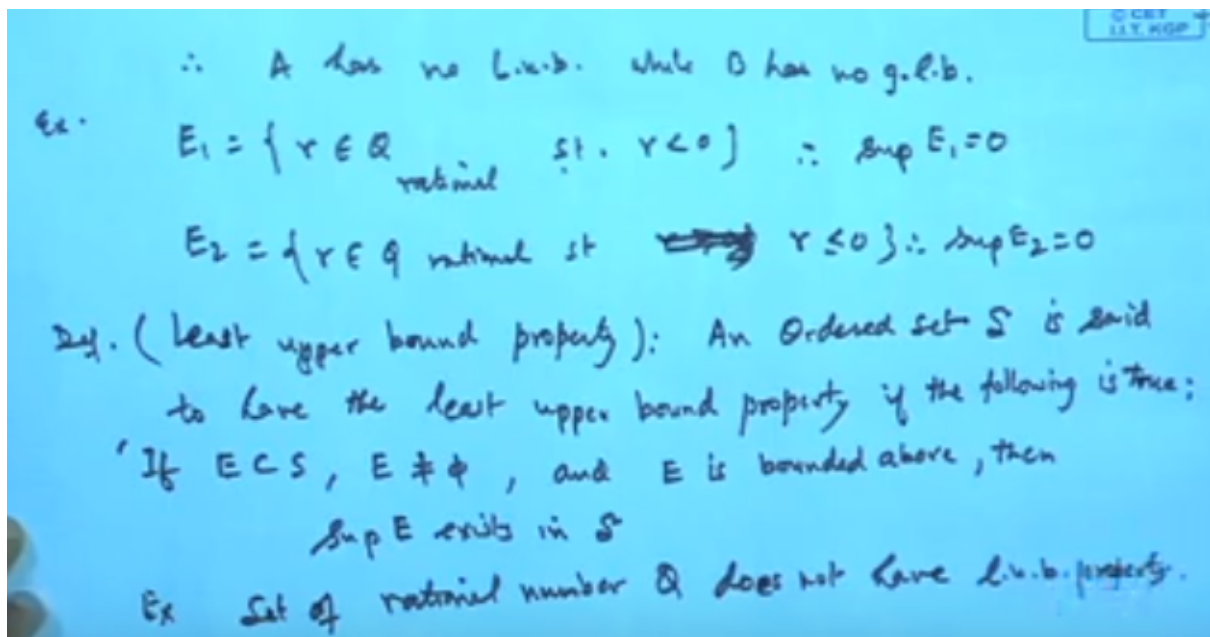 © CET
I.I.T. KGP
∴ A has no l.u.b. while B has no g.l.b.
Ex. E₁ = { r ∈ Q rational st. r < 0 } ∴ sup E₁ = 0
E₂ = { r ∈ Q rational st r ≤ 0 } ∴ sup E₂ = 0
Def. ( Least upper bound property ): An Ordered set S is said
to have the least upper bound property if the following is true:
' If E ⊂ S, E ≠ φ, and E is bounded above, then
sup E exists in S
Ex Set of rational number Q does not have l.u.b. property.